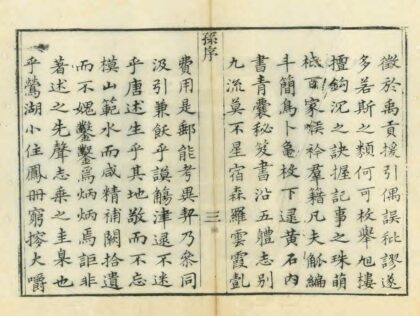 微於禹貢援引偶誤紕謬遂
多若斯之類何可枚舉旭樓
擅鉤沉之訣握記事之珠萌
柢百家睽矜羣籍凡夫觚編
斗簡鳥卜龜枚下逞黃石內
書青囊秘笈書沿五體志別
九流莫不星宿森羅雲霞㓰
孫序
三
費用是郵能考異契乃參同
汲引兼飫乎謨觴津逮不迷
乎唐述生乎其地敬而不忘
模山範水而咸精補闕拾遺
而不媿鑿鑿焉炳炳焉詎非
著述之先聲志乘之圭臬也
乎鶯湖小住鳳冊窮搜大嚼